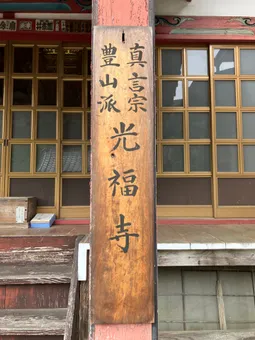 真言宗
豊山派
光福寺